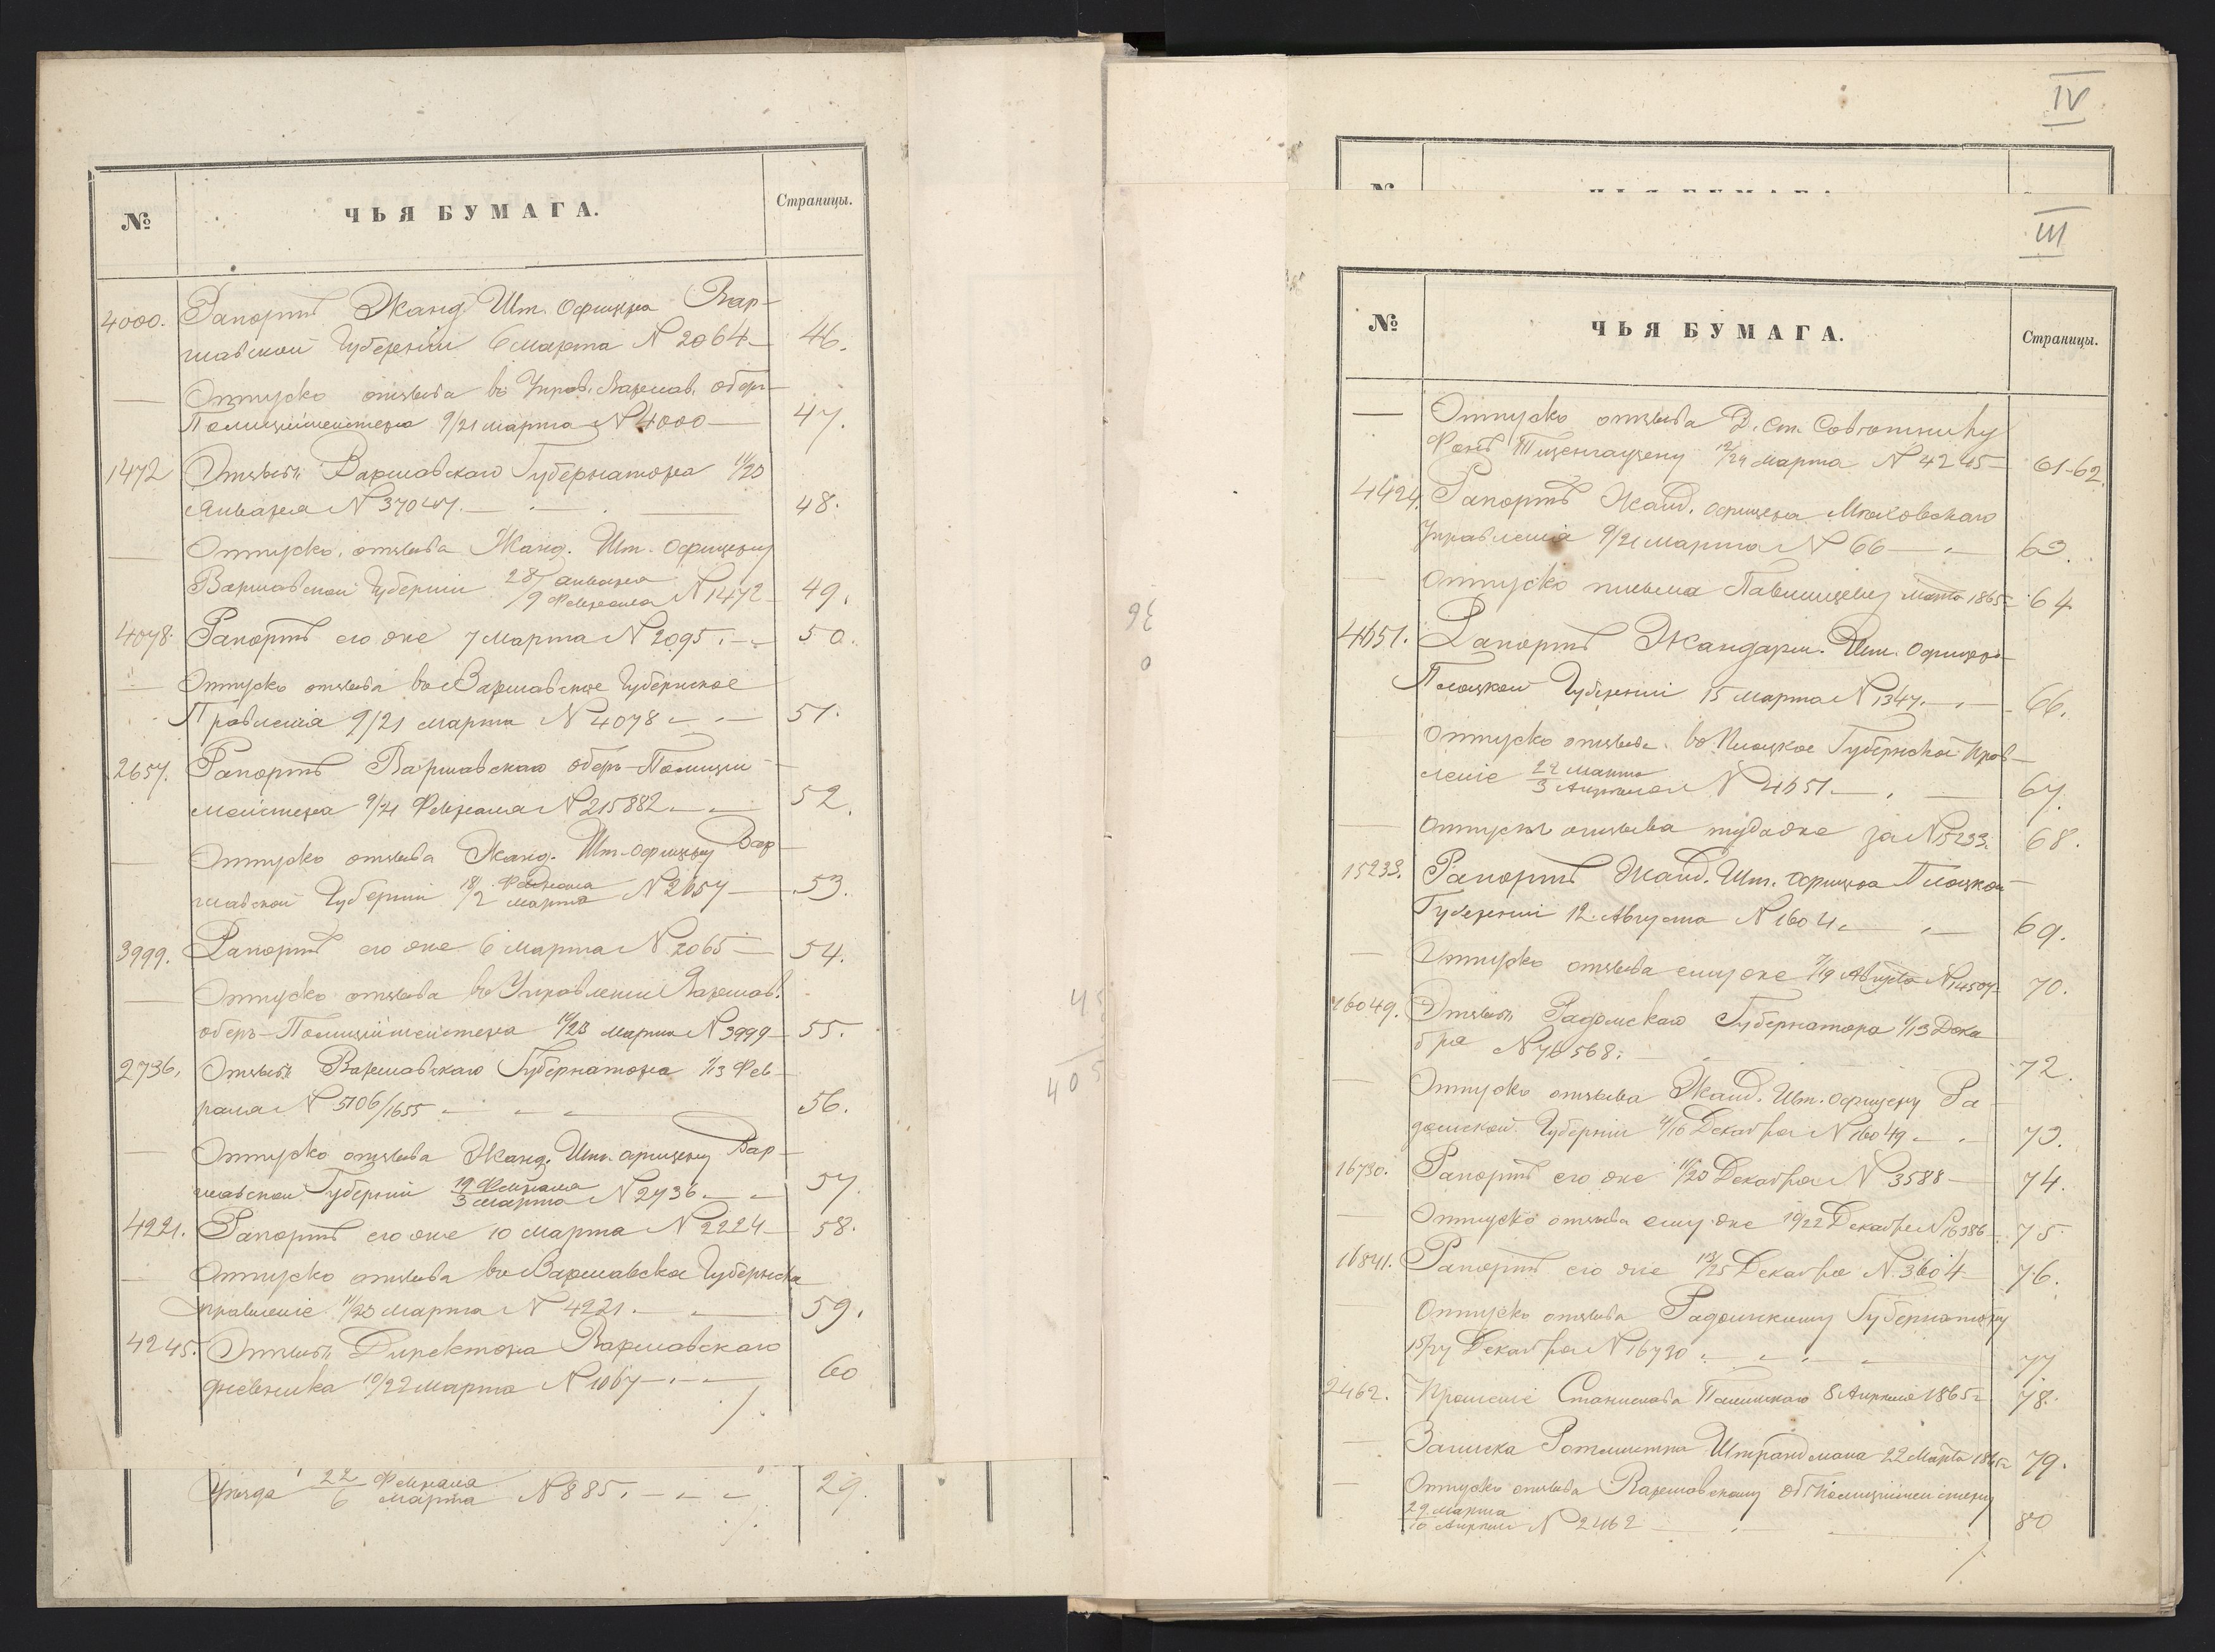 № ЧЬЯ БУМАГА. Страницы.
4000. Рапортъ Жанд. Шт. Офицера Вар-
шавской Губерніи 6 Марта № 2064 — 46.
— Отпускъ отзыва въ Управ. Варшав. Оберъ-
Полиціймейстера 9/21 Марта № 4000 — 47.
1472 Отзывъ Варшавскаго Губернатора 11/23
Января № 37047. — 48.
— Отпускъ отзыва Жанд. Шт. Офицеру
Варшавской Губерніи 28 Января/9 Февраля № 1472 — 49.
4078. Рапортъ его же 7 Марта № 2095. — 50.
— Отпускъ отзыва въ Варшавское Губернское
Правленіе 9/21 Марта № 4078 — 51.
2657. Рапортъ Варшавскаго Оберъ-Полиціи-
мейстера 9/21 Февраля № 215882. — 52.
— Отпускъ отзыва Жанд. Шт-Офицеру Вар-
шавской Губерніи 18 Февраля/2 Марта № 2657 — 53.
3999. Рапортъ его же 6 Марта № 2065 — 54.
— Отпускъ отзыва въ Управленіи Варшав.
Оберъ-Полиціймейстера 11/23 Марта № 3999 — 55.
2736. Отзывъ Варшавскаго Губернатора 1/13 Фев-
раля № 5106/1655 — 56.
— Отпускъ отзыва Жанд. Шт. Офицеру Вар-
шавской Губерніи 19 Февраля/3 Марта № 2736. — 57.
4221. Рапортъ его же 10 Марта № 2224 — 58.
— Отпускъ отзыва въ Варшавское Губернское
Правленіе 11/23 Марта № 4221. — 59.
4245. Отзывъ Директора Варшавскаго
Дневника 10/22 Марта № 1067 — 60
Уѣзда 22 Февраля/6 Марта № 885. — 29.
IV
III
№ ЧЬЯ БУМАГА. Страницы.
— Отпускъ отзыва Д. Ст. Совѣтнику
Фонъ Тизенгаузену 12/24 Марта № 4245 — 61-62.
4424. Рапортъ Жанд. Офицера Мѣховскаго
Управленія 9/21 Марта № 66 — 63.
— Отпускъ письма Павлищеву Марта 1865 г. 64
4651. Рапортъ Жандарм. Шт. Офицера
Плоцкой Губерніи 15 Марта № 1347. — 66.
— Отпускъ отзыва въ Плоцкое Губернское Прав-
леніе 22 Марта/3 Апрѣля № 4651 — 67.
— Отпускъ отзыва туда же за № 15233. 68.
15233. Рапортъ Жанд. Шт. Офицера Плоцкой
Губерніи 12 Августа № 1604. — 69.
— Отпускъ отзыва ему же 7/19 Августа № 14507 — 70.
16049. Отзывъ Радомскаго Губернатора 1/13 Дека
бря № 76568. — 72.
— Отпускъ отзыва Жанд. Шт. Офицеру Ра-
домской Губерніи 4/16 Декабря № 16049 — 73.
16730. Рапортъ его же 11/23 Декабря № 3588 — 74.
— Отпускъ отзыва ему же 10/22 Декабря № 16386 — 75.
16841. Рапортъ его же 13/25 Декабря № 3604 — 76.
— Отпускъ отзыва Радомскому Губернатору
15/27 Декабря № 16730 — 77.
2462. Прошеніе Станислава 8 Апрѣля 1865 г. 78.
— Записка Ротмистра Штрандмана 22 Марта 1865 г. 79.
— Отпускъ отзыва Варшавскому Об. Полиціймейстеру
29 Марта/10 Апрѣля № 2462 — 80